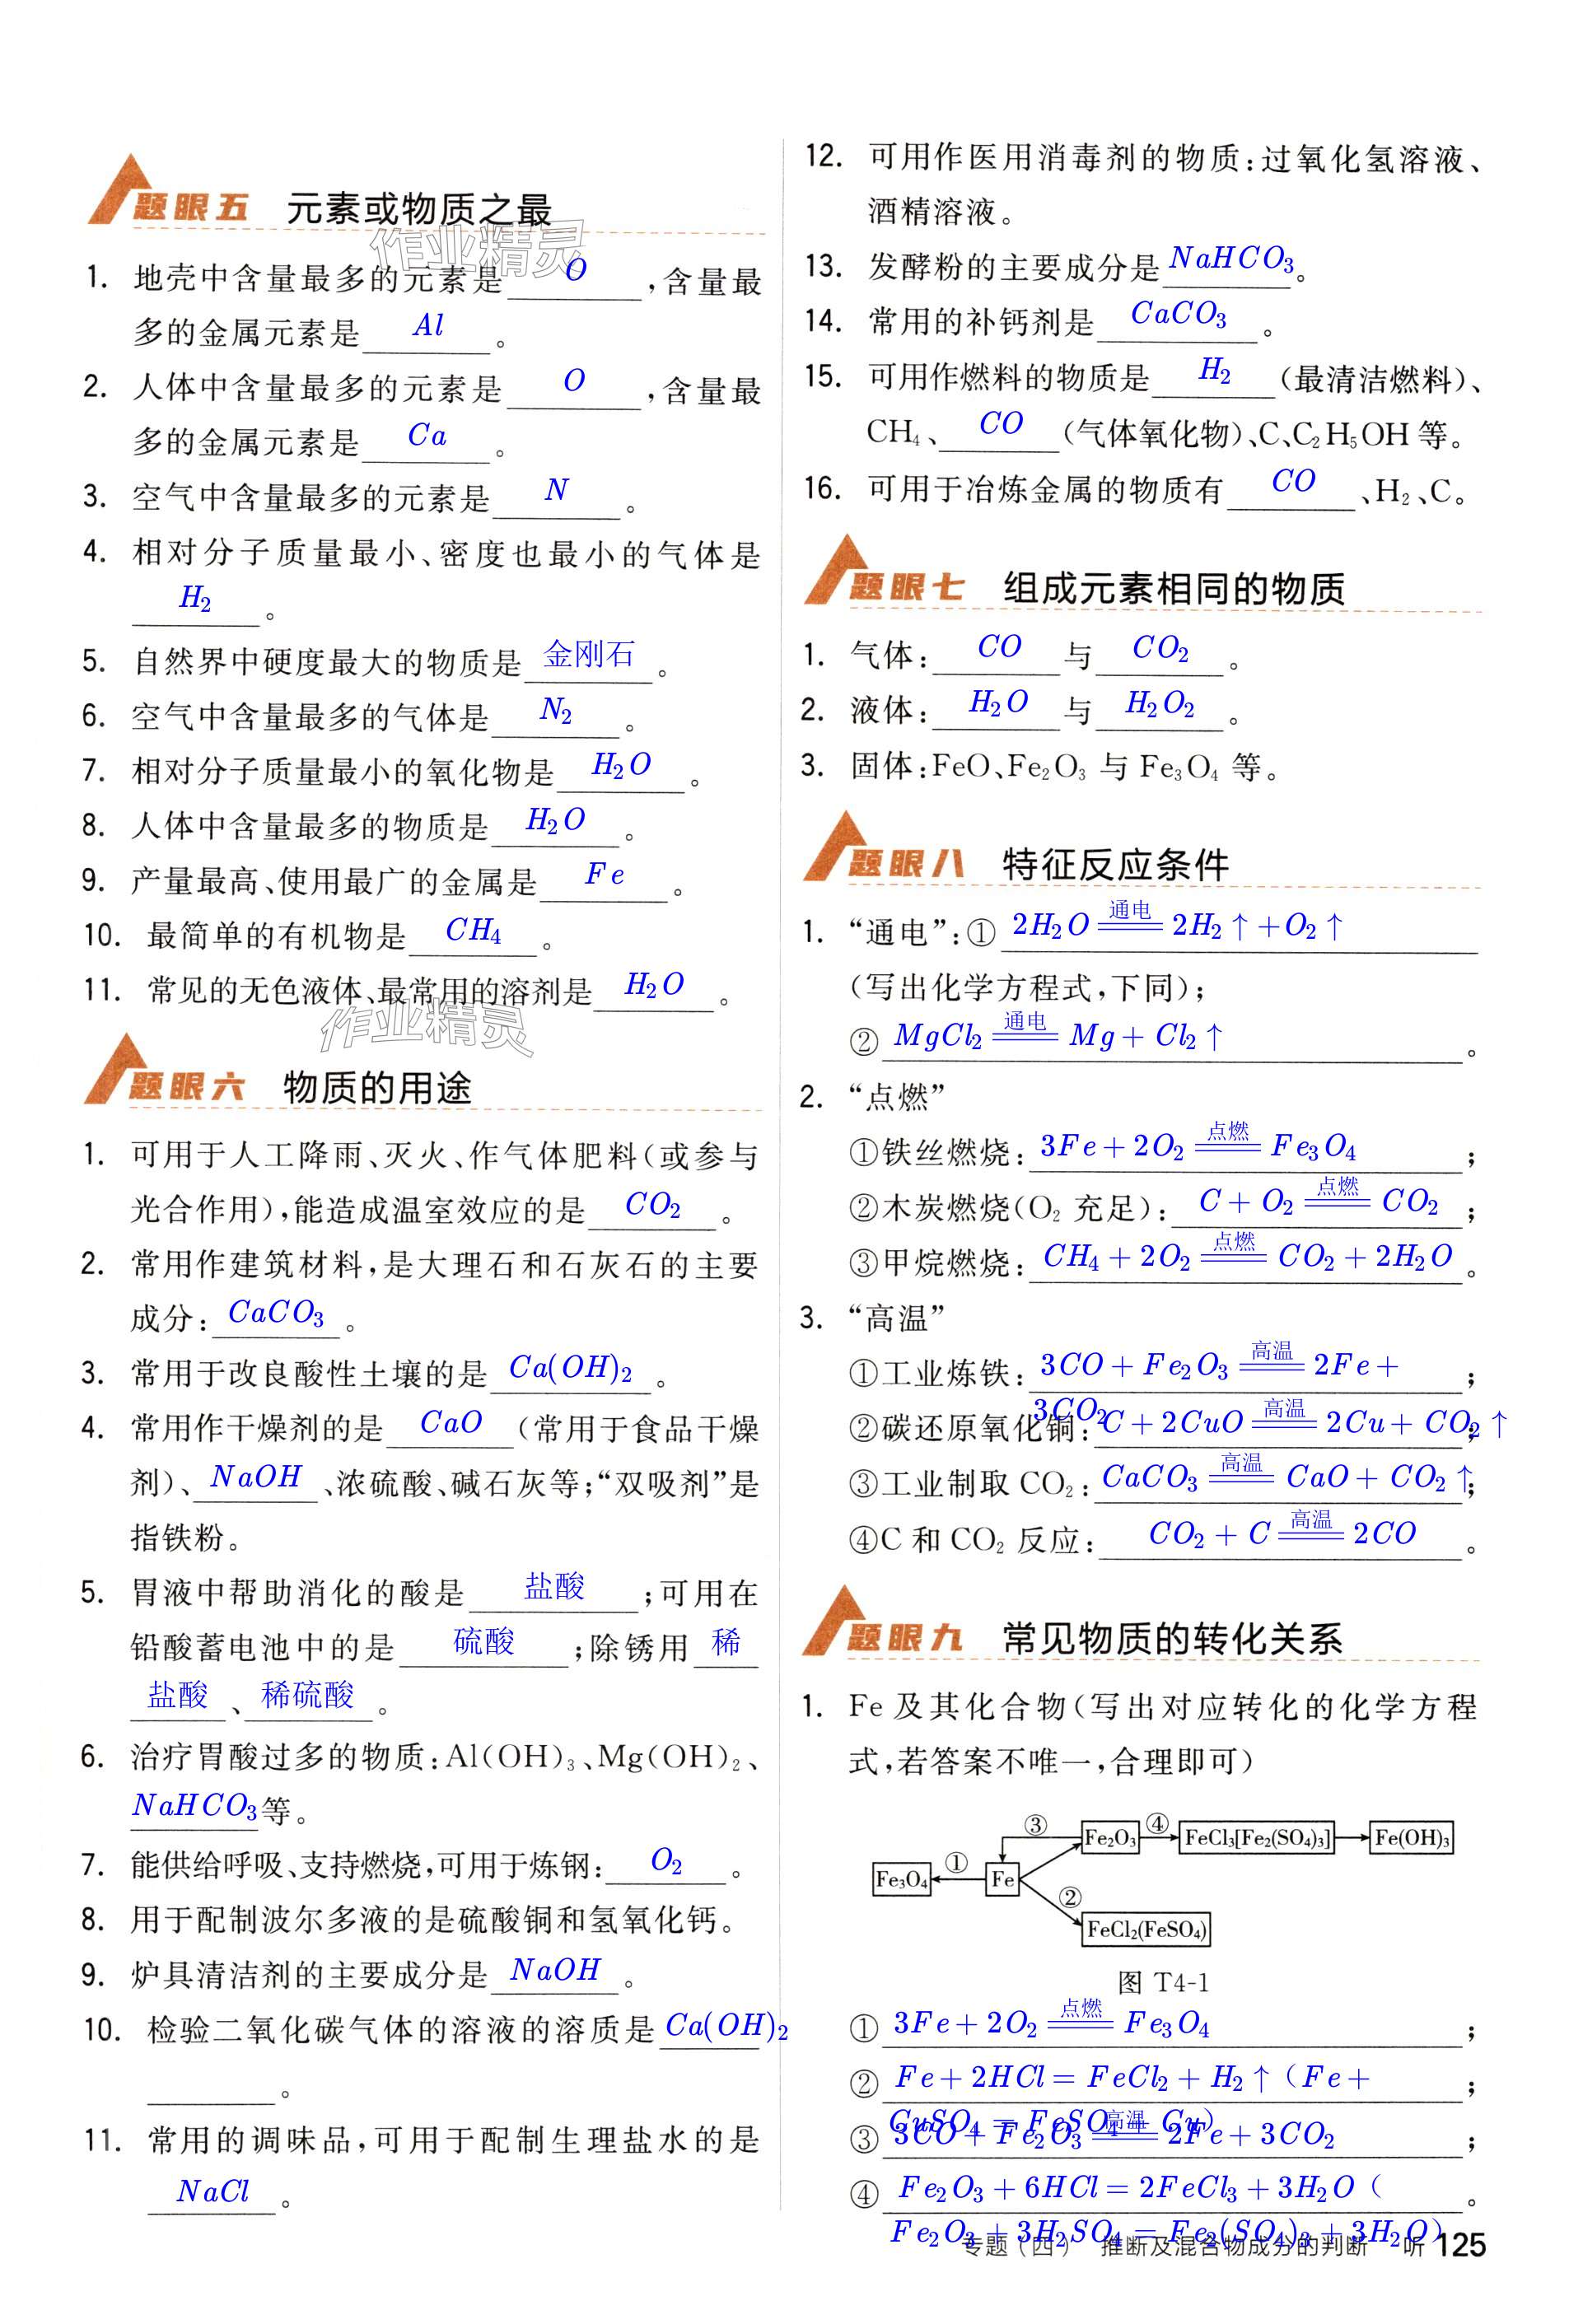 题眼五 元素或物质之最
作业精灵
1. 地壳中含量最多的元素是 O ,含量最
多的金属元素是 Al 。
2. 人体中含量最多的元素是 O ,含量最
多的金属元素是 Ca 。
3. 空气中含量最多的元素是 N 。
4. 相对分子质量最小、密度也最小的气体是
H₂ 。
5. 自然界中硬度最大的物质是 金刚石 。
6. 空气中含量最多的气体是 N₂ 。
7. 相对分子质量最小的氧化物是 H₂O 。
8. 人体中含量最多的物质是 H₂O 。
9. 产量最高、使用最广的金属是 Fe 。
10. 最简单的有机物是 CH₄ 。
11. 常见的无色液体、最常用的溶剂是 H₂O 。
作业精灵
题眼六 物质的用途
1. 可用于人工降雨、灭火、作气体肥料(或参与
光合作用),能造成温室效应的是 CO₂ 。
2. 常用作建筑材料,是大理石和石灰石的主要
成分: CaCO₃ 。
3. 常用于改良酸性土壤的是 Ca(OH)₂ 。
4. 常用作干燥剂的是 CaO (常用于食品干燥
剂)、 NaOH 、浓硫酸、碱石灰等;“双吸剂”是
指铁粉。
5. 胃液中帮助消化的酸是 盐酸 ;可用在
铅酸蓄电池中的是 硫酸 ;除锈用 稀
盐酸 、 稀硫酸 。
6. 治疗胃酸过多的物质:Al(OH)₃、Mg(OH)₂、
NaHCO₃等。
7. 能供给呼吸、支持燃烧,可用于炼钢: O₂ 。
8. 用于配制波尔多液的是硫酸铜和氢氧化钙。
9. 炉具清洁剂的主要成分是 NaOH 。
10. 检验二氧化碳气体的溶液的溶质是 Ca(OH)₂
。
11. 常用的调味品,可用于配制生理盐水的是
NaCl 。
12. 可用作医用消毒剂的物质:过氧化氢溶液、
酒精溶液。
13. 发酵粉的主要成分是 NaHCO₃。
14. 常用的补钙剂是 CaCO₃ 。
15. 可用作燃料的物质是 H₂ (最清洁燃料)、
CH₄、 CO (气体氧化物)、C、C₂H₅OH 等。
16. 可用于冶炼金属的物质有 CO 、H₂、C。
题眼七 组成元素相同的物质
1. 气体: CO 与 CO₂ 。
2. 液体: H₂O 与 H₂O₂ 。
3. 固体:FeO、Fe₂O₃ 与 Fe₃O₄ 等。
题眼八 特征反应条件
1. “通电”:① 2H₂O 通电══ 2H₂↑+O₂↑
(写出化学方程式,下同);
② MgCl₂ 通电══ Mg+Cl₂↑ 。
2. “点燃”
①铁丝燃烧: 3Fe+2O₂ 点燃══ Fe₃O₄ ;
②木炭燃烧(O₂ 充足): C+O₂ 点燃══ CO₂ ;
③甲烷燃烧: CH₄+2O₂ 点燃══ CO₂+2H₂O 。
3. “高温”
①工业炼铁: 3CO+Fe₂O₃ 高温══ 2Fe+ ;
3CO₂
②碳还原氧化铜: C+2CuO 高温══ 2Cu+CO₂↑;
③工业制取 CO₂: CaCO₃ 高温══ CaO+CO₂↑;
④C 和 CO₂ 反应: CO₂+C 高温══ 2CO 。
题眼九 常见物质的转化关系
1. Fe 及其化合物(写出对应转化的化学方程
式,若答案不唯一,合理即可)
③ Fe₂O₃ ④ FeCl₃[Fe₂(SO₄)₃] Fe(OH)₃
Fe₃O₄ ① Fe
②
FeCl₂(FeSO₄)
图 T4-1
① 3Fe+2O₂ 点燃══ Fe₃O₄ ;
② Fe+2HCl=FeCl₂+H₂↑(Fe+ ;
CuSO₄=FeSO₄+Cu)
③ 3CO+Fe₂O₃ 高温══ 2Fe+3CO₂ ;
④ Fe₂O₃+6HCl=2FeCl₃+3H₂O( 。
Fe₂O₃+3H₂SO₄=Fe₂(SO₄)₃+3H₂O)
专题(四) 推断及混合物成分的判断 听 125